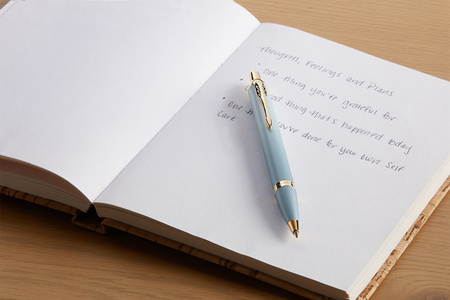 Thoughts, Feelings and Plans
• One thing you're grateful for
• thing that's happened today
• One you've done for your own self
care